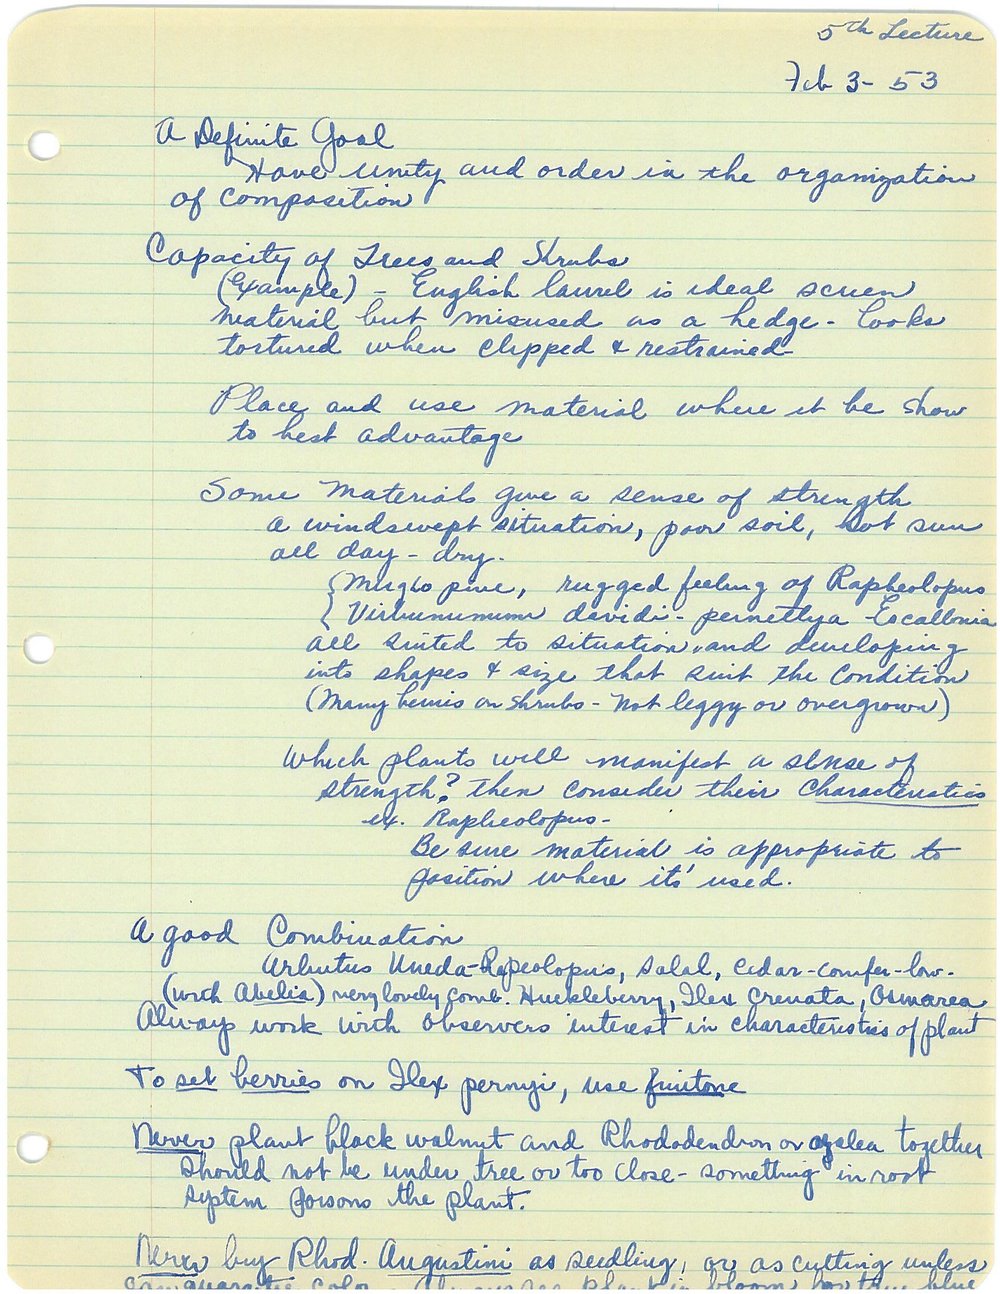 5th Lecture
Feb 3 - 53
A Definite Goal
Have unity and order in the organization
of composition
Capacity of Trees and Shrubs
(Example) - English laurel is ideal screen
material but misused as a hedge - looks
tortured when clipped & restrained -
Place and use material where it be show
to best advantage
Some materials give a sense of strength
a windswept situation, poor soil, hot sun
all day - dry.
{ Mugho pine, rugged feeling of Rapheolopus
{ Viburnumum davidi - pernettya - Escallonia
all suited to situation, and developing
into shapes & size that suit the condition
(Many berries on shrubs - not leggy or overgrown)
Which plants will manifest a sense of
strength? then consider their characteristics
ex. Rapheolopus -
Be sure material is appropriate to
position where it's used.
A good Combination
Arbutus Uneda - Rapeolopus, salal, cedar - conifer - low.
(with Abelia) very lovely comb. Huckleberry, Ilex crenata, Osmarea
Always work with observers interest in characteristics of plant
To set berries on Ilex pernyi, use fruitone
Never plant black walnut and Rhododendron or azalea together
should not be under tree or too close - something in root
system poisons the plant.
Never buy Rhod. Augustini as seedling, or as cutting unless
can guarantee color. plant in bloom for true blue